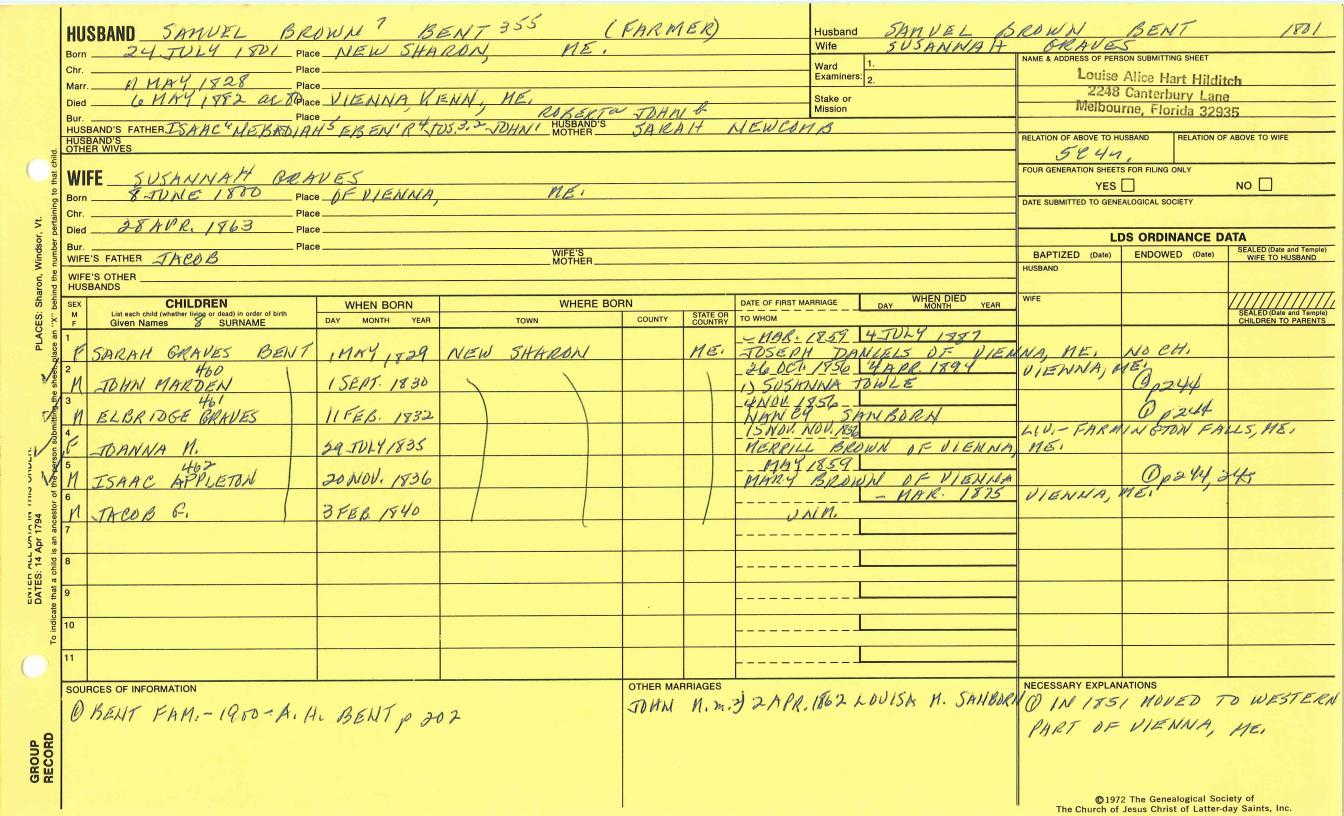 HUSBAND SAMUEL BROWN 7 BENT 355 (FARMER)
Born 24 JULY 1801 Place NEW SHARON, ME.
Chr. Place
Marr. 11 MAY, 1828 Place
Died 6 MAY 1882 Place VIENNA, KENN, ME.
Bur. Place
ROBERT JOHN
HUSBAND'S FATHER ISAAC JOHN HUSBAND'S MOTHER SARAH NEWCOMB
HUSBAND'S OTHER WIVES
WIFE SUSANNAH GRAVES
Born 8 JUNE 1800 Place OF VIENNA, ME.
Chr. Place
Died 28 APR. 1863 Place
Bur. Place
WIFE'S FATHER JACOB WIFE'S MOTHER
WIFE'S OTHER HUSBANDS
Husband SAMUEL BROWN BENT 1801
Wife SUSANNAH GRAVES
Ward Examiners: 1.
2.
Stake or Mission
NAME & ADDRESS OF PERSON SUBMITTING SHEET
Louise Alice Hart Hilditch
2248 Canterbury Lane
Melbourne, Florida 32935
RELATION OF ABOVE TO HUSBAND RELATION OF ABOVE TO WIFE
5C4r.
FOUR GENERATION SHEETS FOR FILING ONLY
YES NO
DATE SUBMITTED TO GENEALOGICAL SOCIETY
LDS ORDINANCE DATA
BAPTIZED (Date) ENDOWED (Date) SEALED (Date and Temple) WIFE TO HUSBAND
HUSBAND
WIFE
SEALED (Date and Temple) CHILDREN TO PARENTS
SEX M F
CHILDREN
List each child (whether living or dead) in order of birth
Given Names 8 SURNAME
WHEN BORN
DAY MONTH YEAR
WHERE BORN
TOWN COUNTY STATE OR COUNTRY
DATE OF FIRST MARRIAGE
TO WHOM
WHEN DIED
DAY MONTH YEAR
1 - MAR. 1859 4 JULY 1887
F SARAH GRAVES BENT 1 MAY 1829 NEW SHARON ME. JOSEPH DANIELS OF VIENNA, ME. NO CH.
2 460 26 OCT. 1856 4 APR. 1894 VIENNA, ME.
M JOHN MARDEN 1 SEPT. 1830 1) SUSANNA TOWLE ① p244
3 461 4 NOV. 1856
M ELBRIDGE GRAVES 11 FEB. 1832 NANCY SANBORN ① p244
4 15 NOV. NOV. LIV. - FARMINGTON FALLS, ME.
F JOANNA M. 29 JULY 1835 MERRILL BROWN OF VIENNA, ME.
5 462 MAY 1859
M ISAAC APPLETON 20 NOV. 1836 MARY BROWN OF VIENNA ① p244, 245
6 - MAR. 1875 VIENNA, ME.
M JACOB G. 3 FEB. 1840 UNM.
7
8
9
10
11
SOURCES OF INFORMATION
① BENT FAM. - 1900 - A. H. BENT p 202
OTHER MARRIAGES
JOHN M. m. 2) 2 APR. 1862 LOUISA M. SANBORN
NECESSARY EXPLANATIONS
① IN 1851 MOVED TO WESTERN
PART OF VIENNA, ME.
©1972 The Genealogical Society of
The Church of Jesus Christ of Latter-day Saints, Inc.
PLACES: Sharon, Windsor, Vt.
DATES: 14 Apr 1794
GROUP RECORD